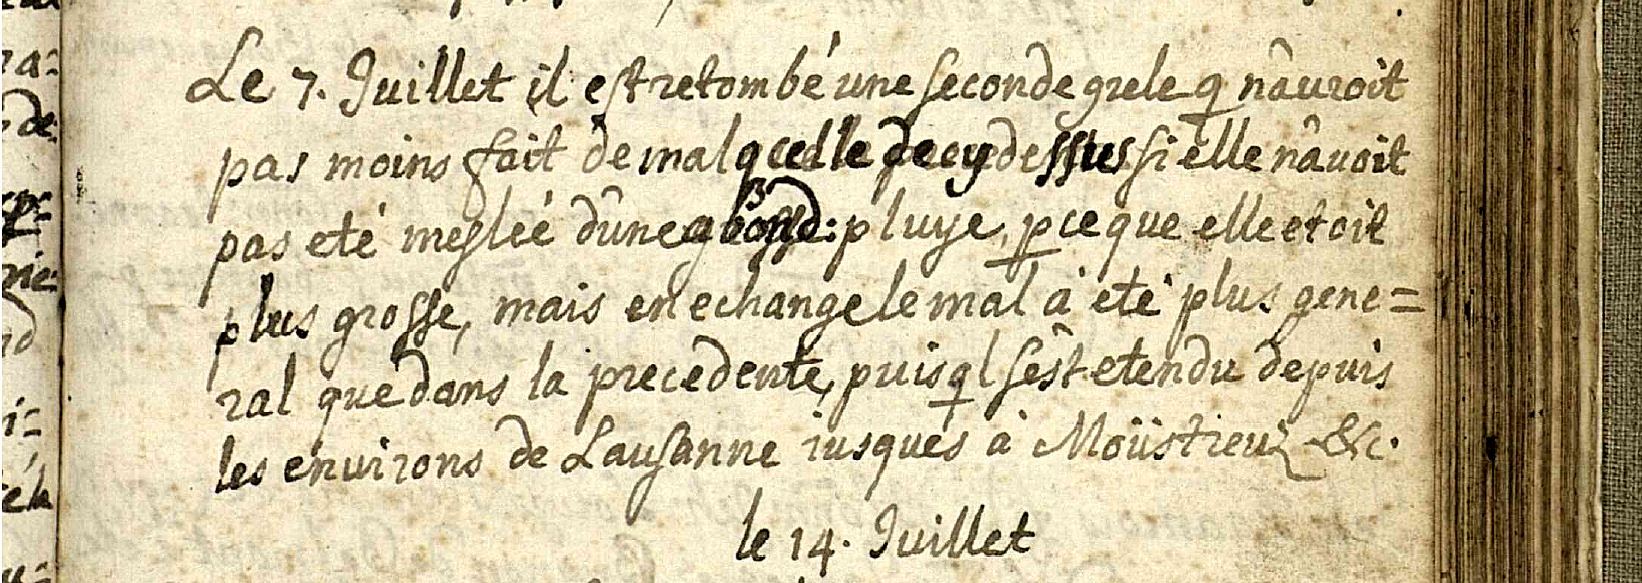 Le 7. Juillet il est retombé une seconde grele q n'auroit
pas moins fait de mal q celle de cy dessus si elle n'avoit
pas eté meslée d'une pluye, pce que elle etoit
plus grosse, mais en echange le mal à eté plus gene=
ral que dans la precedente, puisql s'est etendu depuis
les environs de Lausanne iusques à Moüstreuz &c.
le 14. Juillet